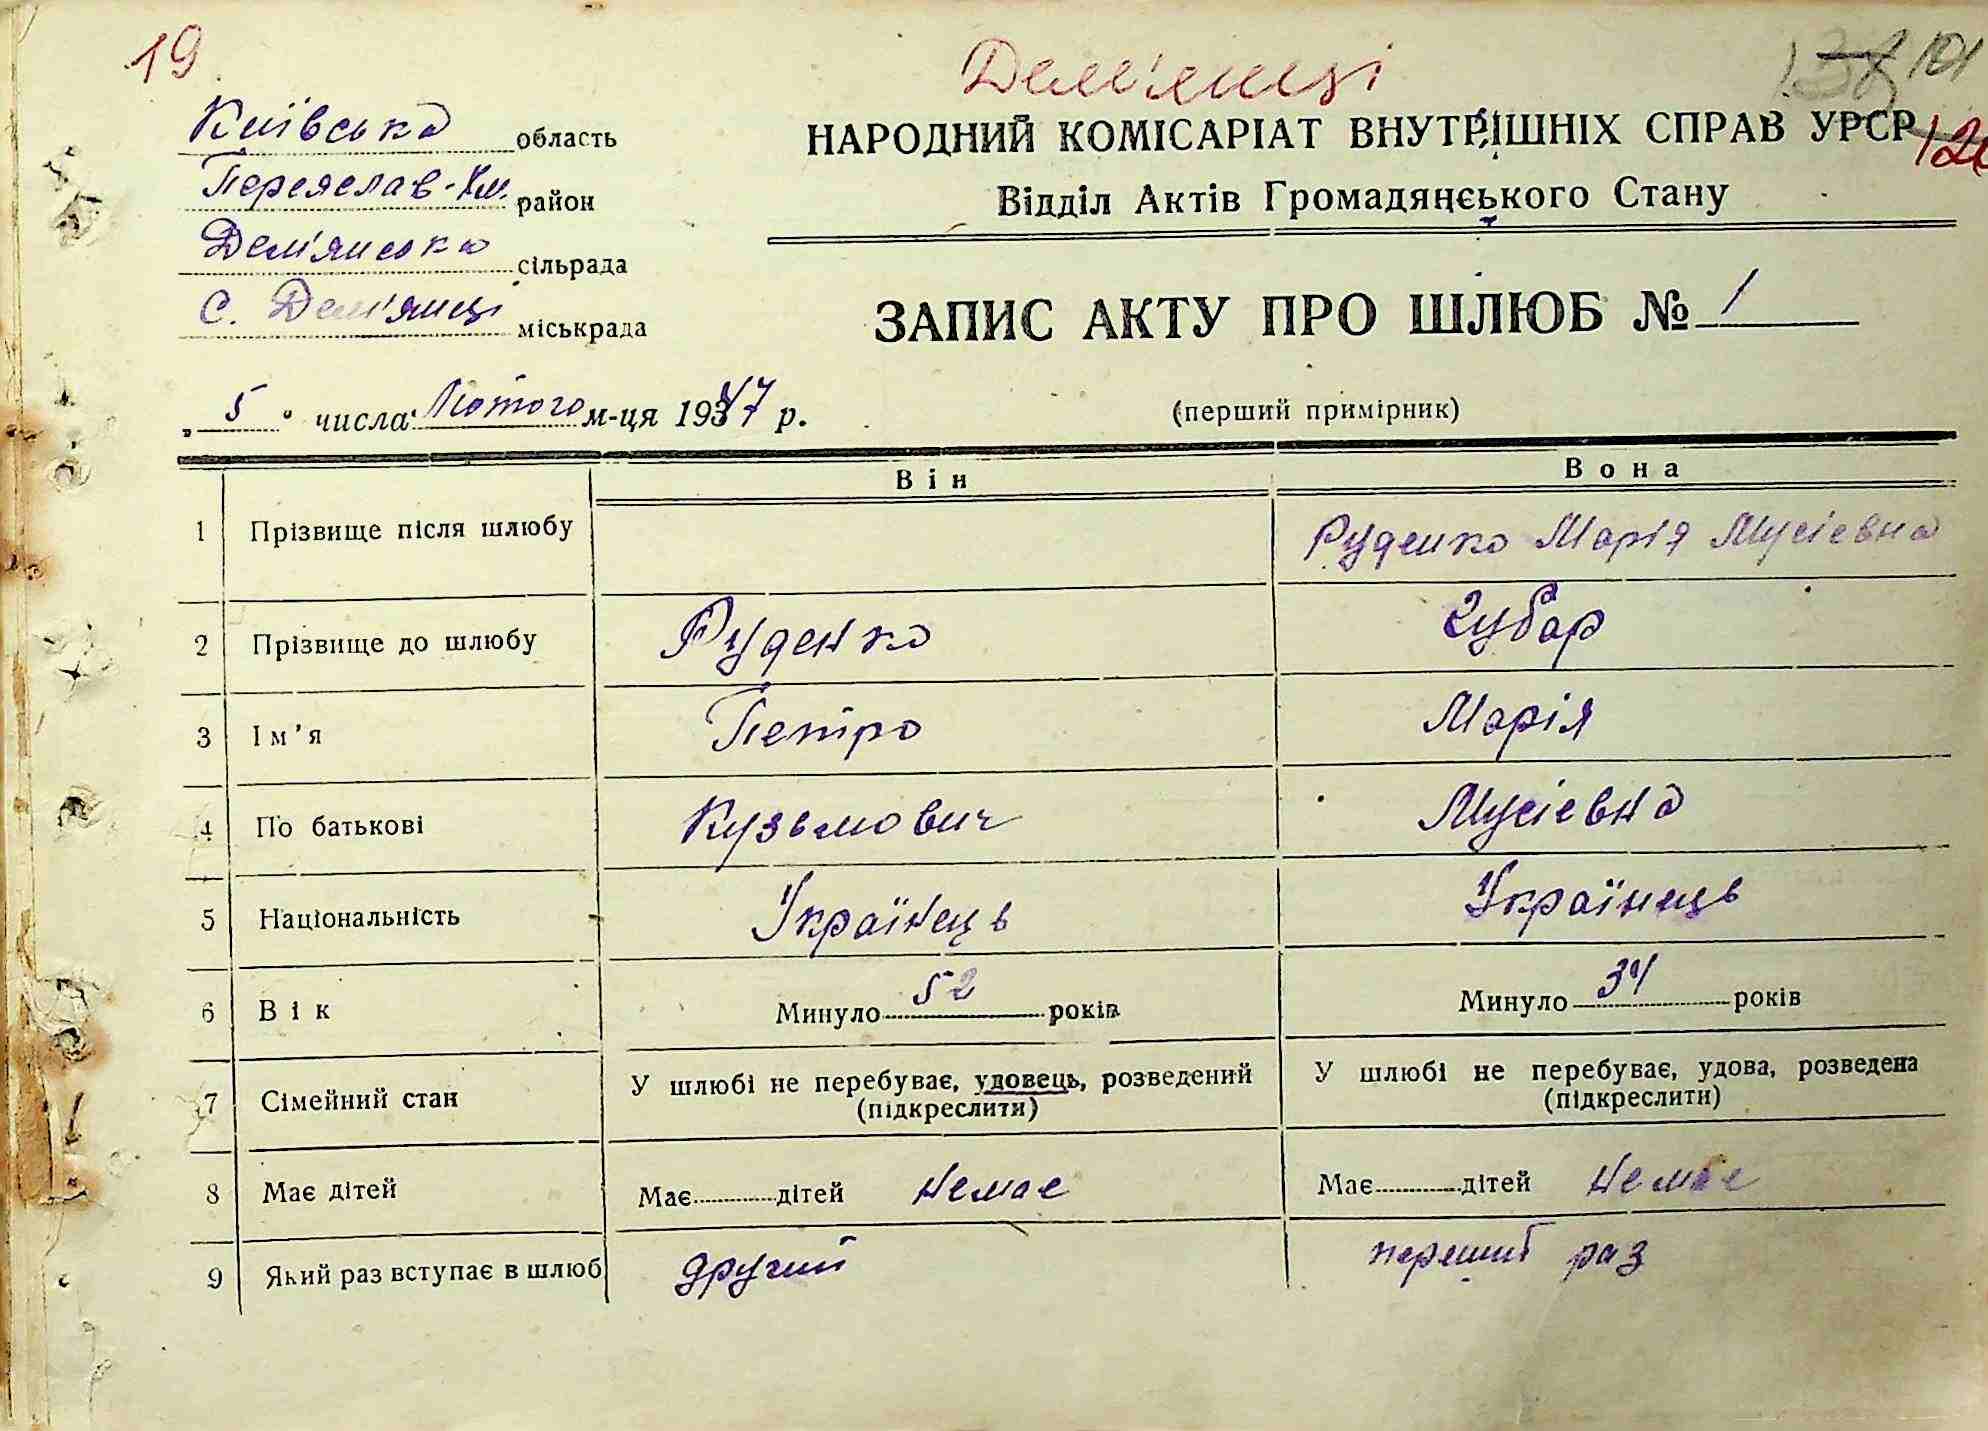 19
Дем'янці
138 101
Київська область
НАРОДНИЙ КОМІСАРІАТ ВНУТРІШНІХ СПРАВ УРСР
Переяслав-Хм. район
Відділ Актів Громадянського Стану
Дем'янська сільрада
с. Дем'янці міськрада
ЗАПИС АКТУ ПРО ШЛЮБ № 1
„5" числа Лютого м-ця 1947 р.
(перший примірник)
Він Вона
1 Прізвище після шлюбу Руденко Марія Мусіевна
2 Прізвище до шлюбу Руденко Губар
3 Ім'я Петро Марія
4 По батькові Кузьмович Мусіевна
5 Національність Українець Українець
6 Вік Минуло 52 років Минуло 34 років
7 Сімейний стан У шлюбі не перебуває, удовець, розведений У шлюбі не перебуває, удова, розведена
(підкреслити) (підкреслити)
8 Має дітей Має дітей Немає Має дітей Немає
9 Який раз вступає в шлюб другий перший раз